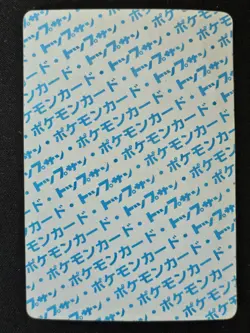 ポケモンカード・トップサン・
トップサン・ポケモンカード・
ポケモンカード・トップサン・
トップサン・ポケモンカード・
ポケモンカード・トップサン・
トップサン・ポケモンカード・
ポケモンカード・トップサン・
トップサン・ポケモンカード・
ポケモンカード・トップサン・
トップサン・ポケモンカード・
ポケモンカード・トップサン・
トップサン・ポケモンカード・